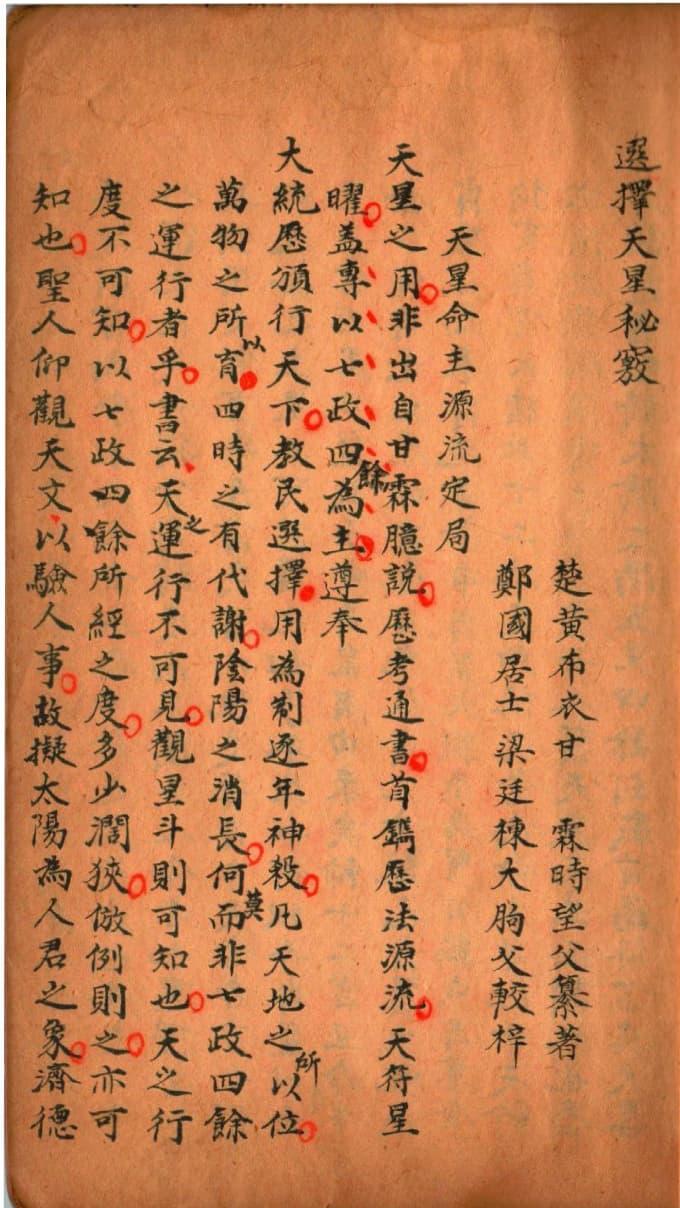 選擇天星秘竅
楚黃布衣甘 霖時望父纂著
鄭國居士梁廷棟大胸父較梓
天星命主源流定局
天星之用非出自甘霖臆説歷考通書首鐫歷法源流天符星
曜蓋專以七政四餘為主遵奉
大統歷頒行天下教民選擇用為制逐年神殺凡天地之所以位
萬物之所以育四時之有代謝陰陽之消長何莫而非七政四餘
之運行者乎書云天之運行不可見觀星斗則可知也天之行
度不可知以七政四餘所經之度多少濶狹倣例則之亦可
知也聖人仰觀天文以驗人事故擬太陽為人君之象濟德